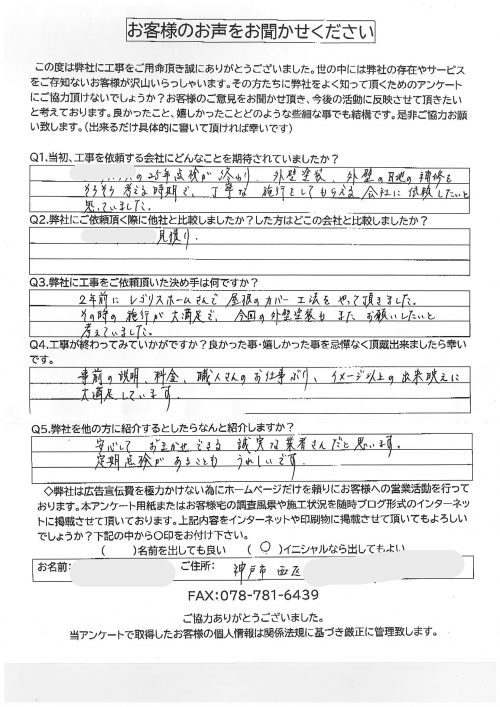 お客様のお声をお聞かせください
この度は弊社に工事をご用命頂き誠にありがとうございました。世の中には弊社の存在やサービス
をご存知ないお客様が沢山いらっしゃいます。その方たちに弊社をよく知って頂くためのアンケート
にご協力頂けないでしょうか？お客様のご意見をお聞かせ頂き、今後の活動に反映させて頂きたい
と考えております。良かったこと、嬉しかったことどのような些細な事でも結構です。是非ご協力お願
い致します。（出来るだけ具体的に書いて頂ければ幸いです）
Q1.当初、工事を依頼する会社にどんなことを期待されていましたか？
の25年点検が終わり、外壁塗装、外壁の目地の補修を
そろそろ考える時期で、丁寧な施行をしてもらえる会社に依頼したいと
思っていました。
Q2.弊社にご依頼頂く際に他社と比較しましたか？した方はどこの会社と比較しましたか？
見積り.
Q3.弊社に工事をご依頼頂いた決め手は何ですか？
2年前にレゴリスホームさんで屋根のカバー工法をやって頂きました。
その時の施行が大満足で、今回の外壁塗装もまたお願いしたいと
考えていました。
Q4.工事が終わってみていかがですか？良かった事・嬉しかった事を忌憚なく頂戴出来ましたら幸い
です。
事前の説明、料金、職人さんのお仕事ぶり、イメージ以上の出来映えに
大満足しています.
Q5.弊社を他の方に紹介するとしたらなんと紹介しますか？
安心しておまかせできる誠実な業者さんだと思います。
定期点検があることもうれしいです.
◇弊社は広告宣伝費を極力かけない為にホームページだけを頼りにお客様への営業活動を行って
おります。本アンケート用紙またはお客様宅の調査風景や施工状況を随時ブログ形式のインターネッ
トに掲載させて頂いております。上記内容をインターネットや印刷物に掲載させて頂いてもよろしい
でしょうか？下記の中から〇印をお付け下さい。
（ ）名前を出しても良い （〇）イニシャルなら出してもよい
お名前： ご住所： 神戸市 西区
FAX:078-781-6439
ご協力ありがとうございました。
当アンケートで取得したお客様の個人情報は関係法規に基づき厳正に管理致します。